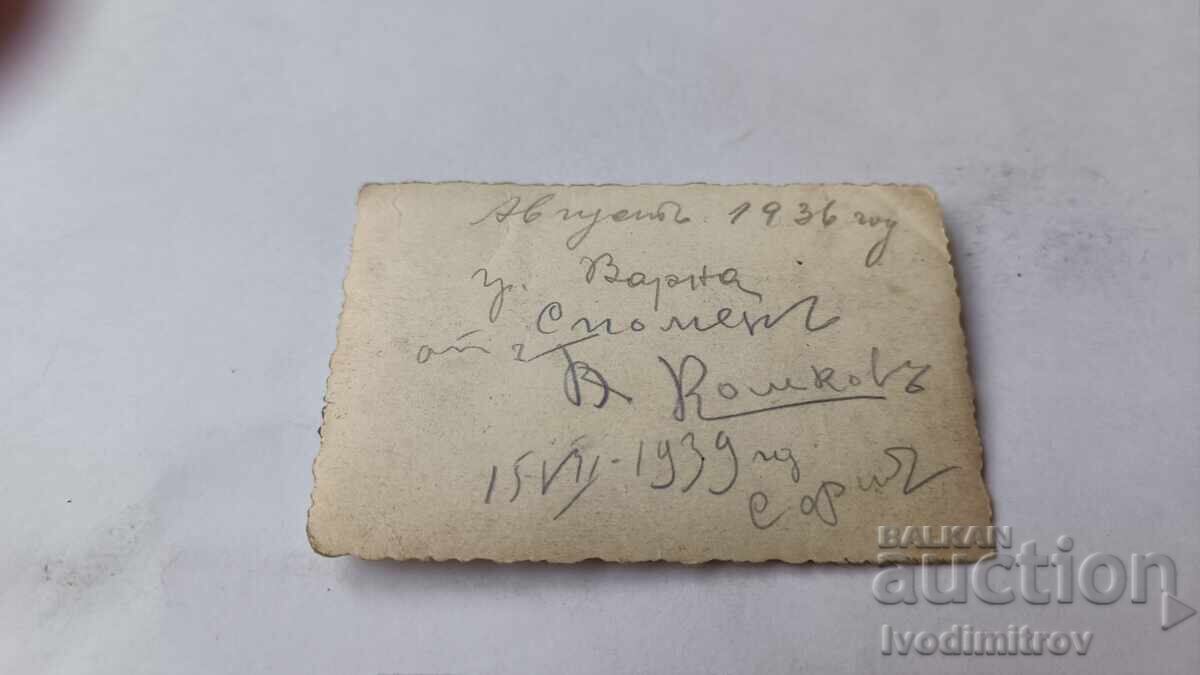 Августъ. 1936 год
гр. Варна
Споменъ
отъ
В. Комковъ
15 VII - 1939 год
София
BALKAN
auction
Ivodimitrov